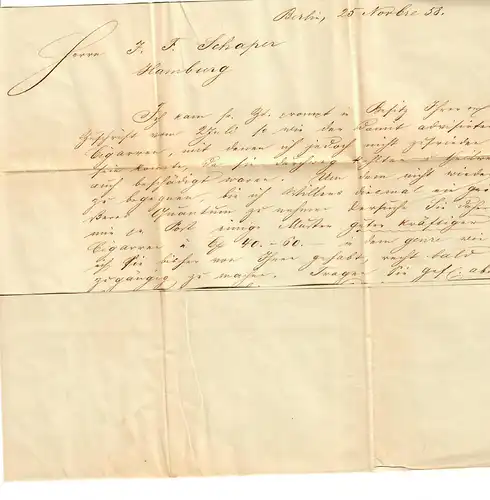 Berlin, 25 Novbre 58.
Herrn J. F. Schaper
Hamburg
Ich kam sr. Zt. prompt in Besitz Ihrer
Zuschrift vom so wie der damit advisirten
Cigarren, mit denen ich jedoch nicht zufrieden
sein konnte da sie
auch beschädigt waren. Um dem nicht wieder
zu begegnen, bin ich Willens diesmal ein
ßeres Quantum zu nehmen
mir pr Post einige Muster guter kräftiger
Cigarren à 40.-60.- in dem genre wie
ich sie bisher von Ihnen gehabt, recht bald
zugängig zu machen. Tragen Sie gefl.